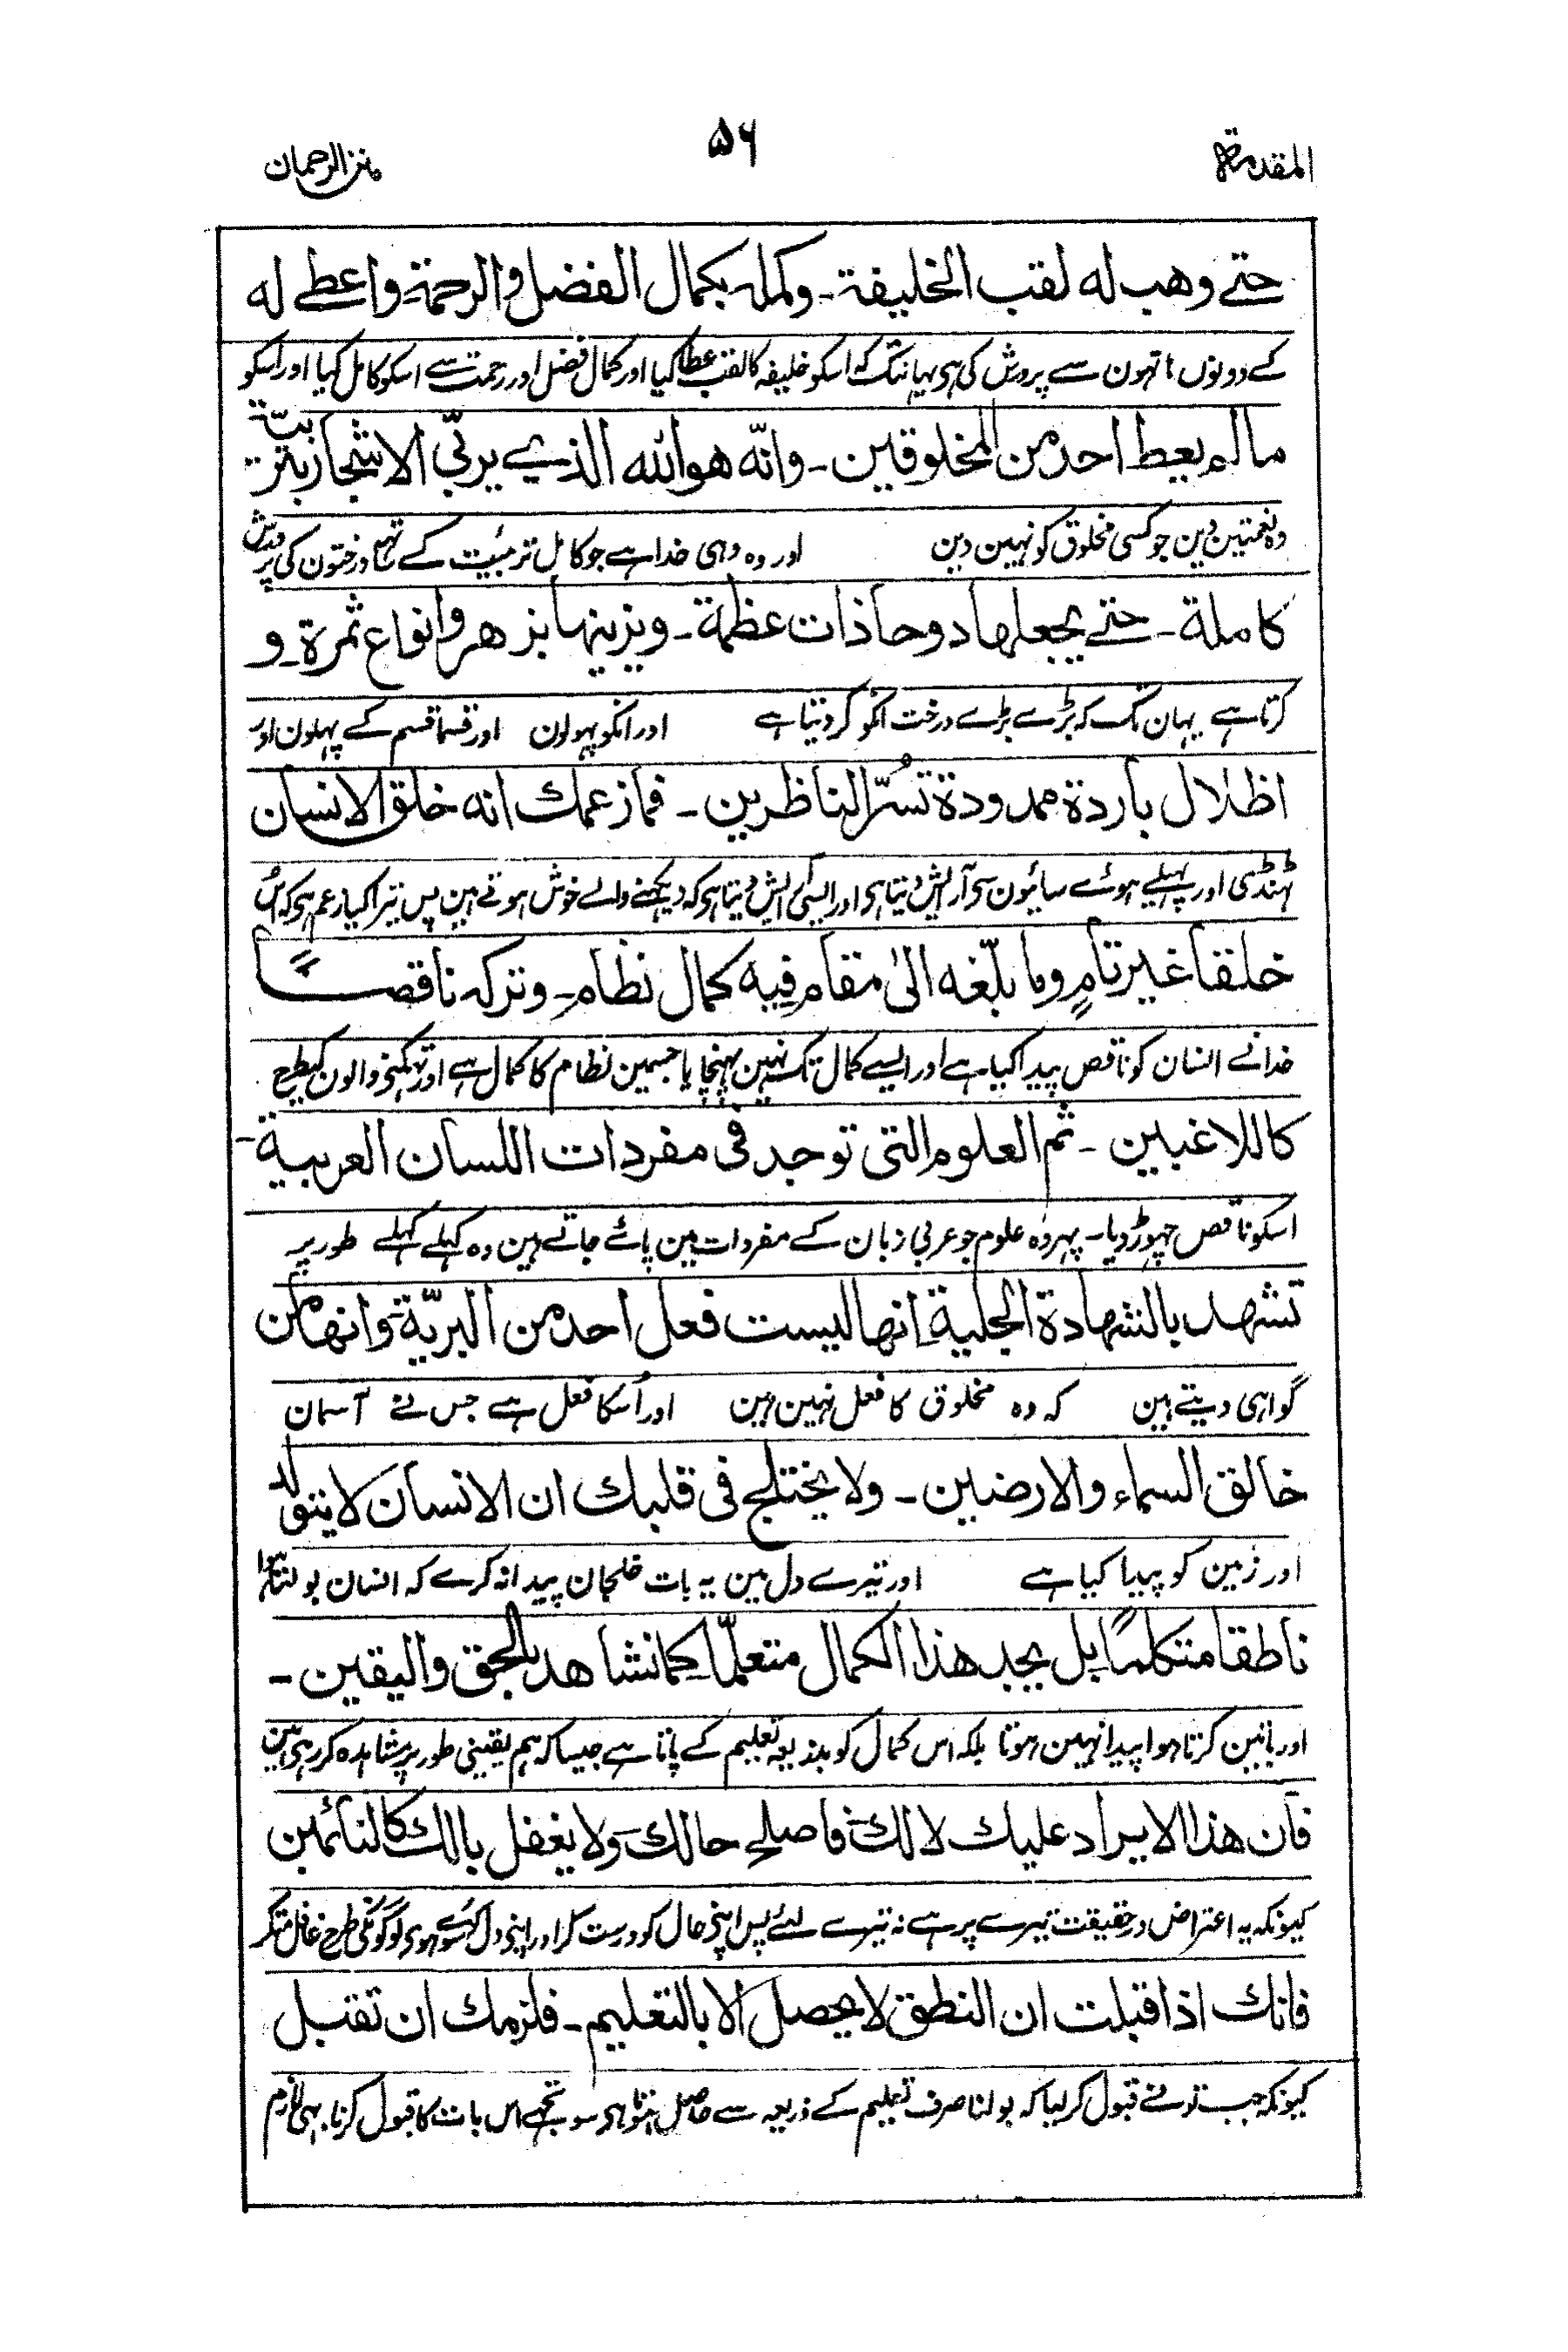 المقدمة ۵۶ منن الرحمان
حتے وهب له لقب الخليفة۔ وكمله بكمال الفضل والرحمة واعطے له
کے دونوں ہاتہون سے پرورش کی ہی یہانتک کہ اسکو خلیفہ کا لقب عطا کیا اور کمال فضل اور رحمت سے اسکو کامل کیا اور اسکو
مالم يعط احد من المخلوقين۔ وانّه هو الله الذي يربّي الاشجار بتربيّة
وہ نعمتین دین جو کسی مخلوق کو نہین دین اور وہ وہی خدا ہے جو کامل تربیت کے ساتھ درختون کی پرورش
كاملة۔ حتے يجعلها دوحا ذات عظمة۔ ويزينها بزهر وانواع ثمرة۔ و
کرتا ہے یہان تک کہ بڑے بڑے درخت انکو کر دیتا ہے اور انکو پہولون اور قسما قسم کے پہلون اور
اظلال باردة ممدودة تسُرّ الناظرين۔ فما زعمك انه خلق الانسان
ٹہنڈی اور پہیلے ہوئے سائیون سی آرایش دیتا ہی اور ایسی آرایش دیتا ہی کہ دیکہنے والے خوش ہوتے ہین پس تیرا کیا زعم ہی کہ اُس
خلقا غير تامٍ وما بلّغه الىٰ مقام فيه كمال نظام۔ وتركه ناقصًا
خدا نے انسان کو ناقص پیدا کیا ہے اور ایسے کمال تک نہین پہنچایا جسمین نظام کا کمال ہے اور کہیلنے والون کیطرح
كاللاغبين۔ ثم العلوم التى توجد فى مفردات اللسان العربية۔
اسکو ناقص چہوڑ دیا۔ پہر وہ علوم جو عربی زبان کے مفردات مین پائے جاتے ہین وہ کہلے کہلے طور پر
تشهد بالشهادة الجلية۔ انها ليست فعل احد من البريّة وانها من
گواہی دیتے ہین کہ وہ مخلوق کا فعل نہین ہین اور اُسکا فعل ہے جس نے آسمان
خالق السماء والارضين۔ ولا يختلج فى قلبك ان الانسان لا يتولد
اور زمین کو پیدا کیا ہے اور تیرے دل مین یہ بات خلجان پیدا نہ کرے کہ انسان بولتا ہوا
ناطقا متكلمًا بل يجد هذا الكمال متعلّما كما نشاهد بالحق واليقين۔
اور باتین کرتا ہوا پیدا نہین ہوتا بلکہ اس کمال کو بذریعہ تعلیم کے پاتا ہے جیسا کہ ہم یقینی طور پر مشاہدہ کر رہی ہین
فان هذا الايراد عليك لا لك۔ فاصلح حالك ولا يغفل بالك كالنائمين
کیونکہ یہ اعتراض درحقیقت تیرے پر ہے نہ تیرے لئے پس اپنی حال کو درست کر اور اپنی دل کو سوئے ہوی لوگونکی طرح غافل مت کر
فانك اذا قبلت ان النطق لا يحصل الا بالتعليم۔ فلزمك ان تقبل
کیونکہ جب تو نے قبول کر لیا کہ بولنا صرف تعلیم کے ذریعہ سے حاصل ہوتا ہی سو تجہے اس بات کا قبول کرنا بہی لازم